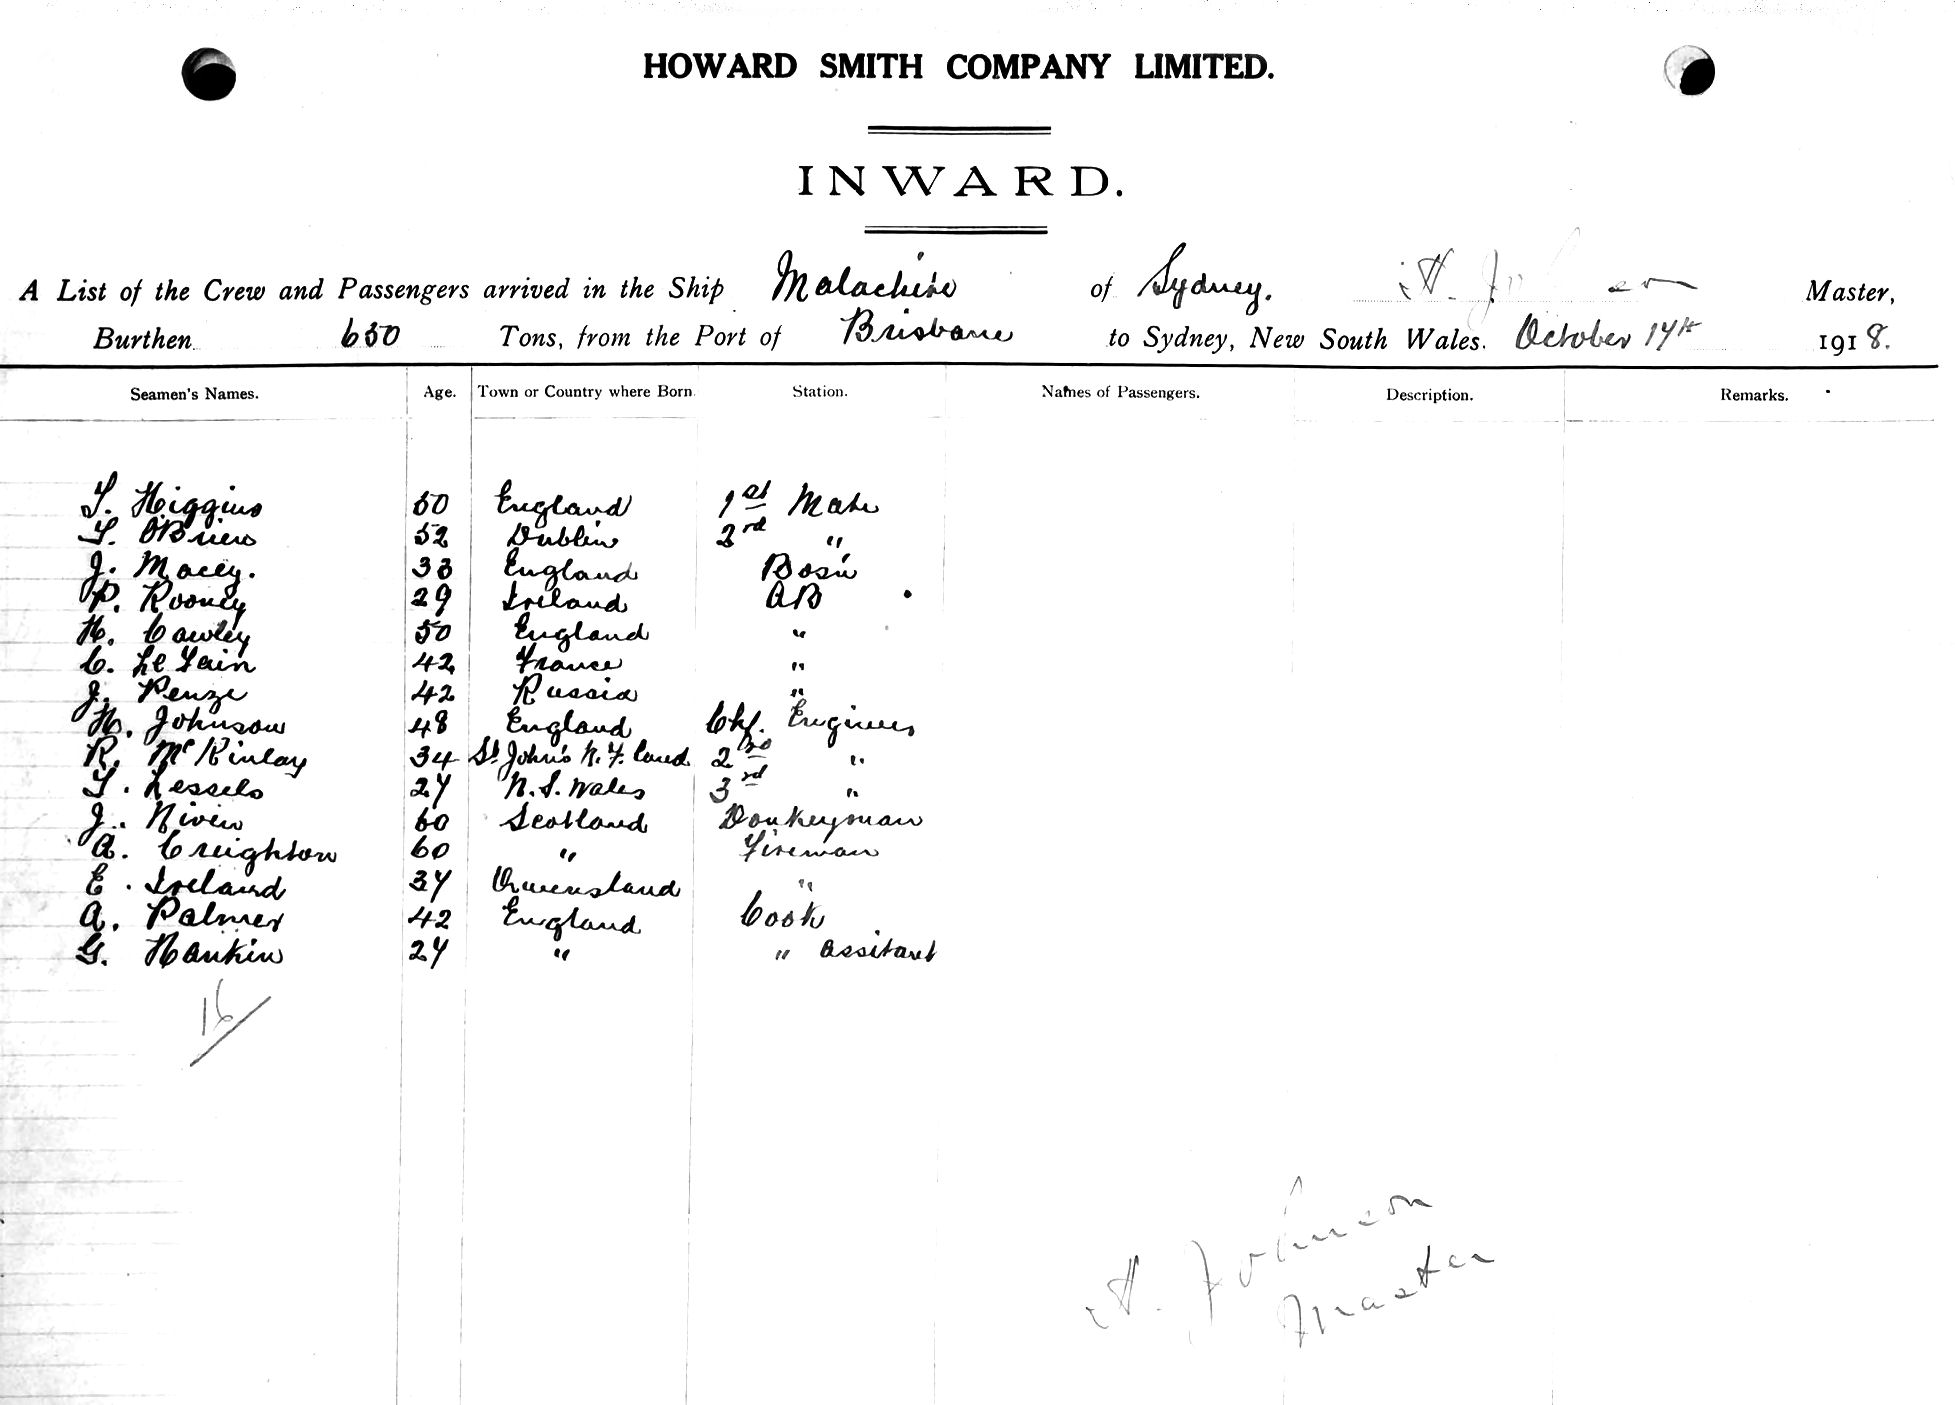 HOWARD SMITH COMPANY LIMITED.
INWARD.
A List of the Crew and Passengers arrived in the Ship Malachite of Sydney. H. Johnson Master,
Burthen 650 Tons, from the Port of Brisbane to Sydney, New South Wales. October 17th 1918.
Seamen's Names. Age. Town or Country where Born. Station. Names of Passengers. Description. Remarks.
T. Higgins 50 England 1st Mate
T. O'Brien 52 Dublin 2nd "
J. Macey. 33 England Bos'n
P. Rooney 29 Ireland AB
H. Cawley 50 England "
C. Le Gain 42 France "
J. Penze 42 Russia "
H. Johnson 48 England Chf. Engineer
R. McKinlay 34 St John's N.F. land 2nd "
T. Lessels 27 N.S. Wales 3rd "
J. Niven 60 Scotland Donkeyman
A. Creighton 60 " Fireman
E. Ireland 37 Queensland "
A. Palmer 42 England Cook
G. Hankin 27 " " Assitant
16
H. Johnson
Master